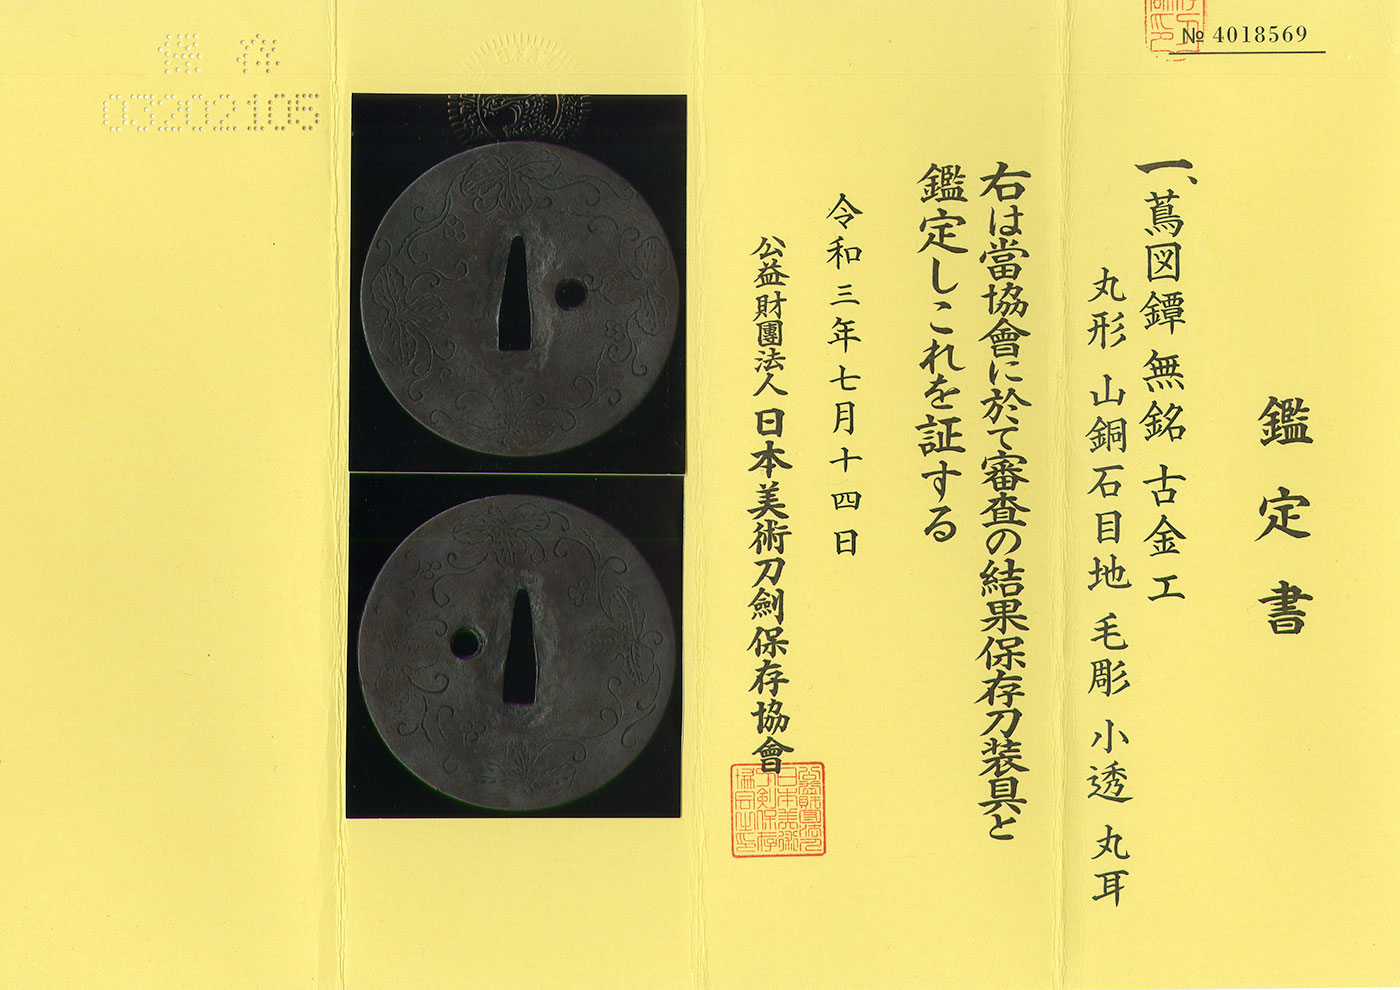 № 4018569
鑑定書
一、蔦図鐔 無銘 古金工
丸形 山銅石目地 毛彫 小透 丸耳
右は當協會に於て審査の結果保存刀装具と
鑑定しこれを証する
令和三年七月十四日
公益財團法人 日本美術刀劍保存協會
保存
03202105